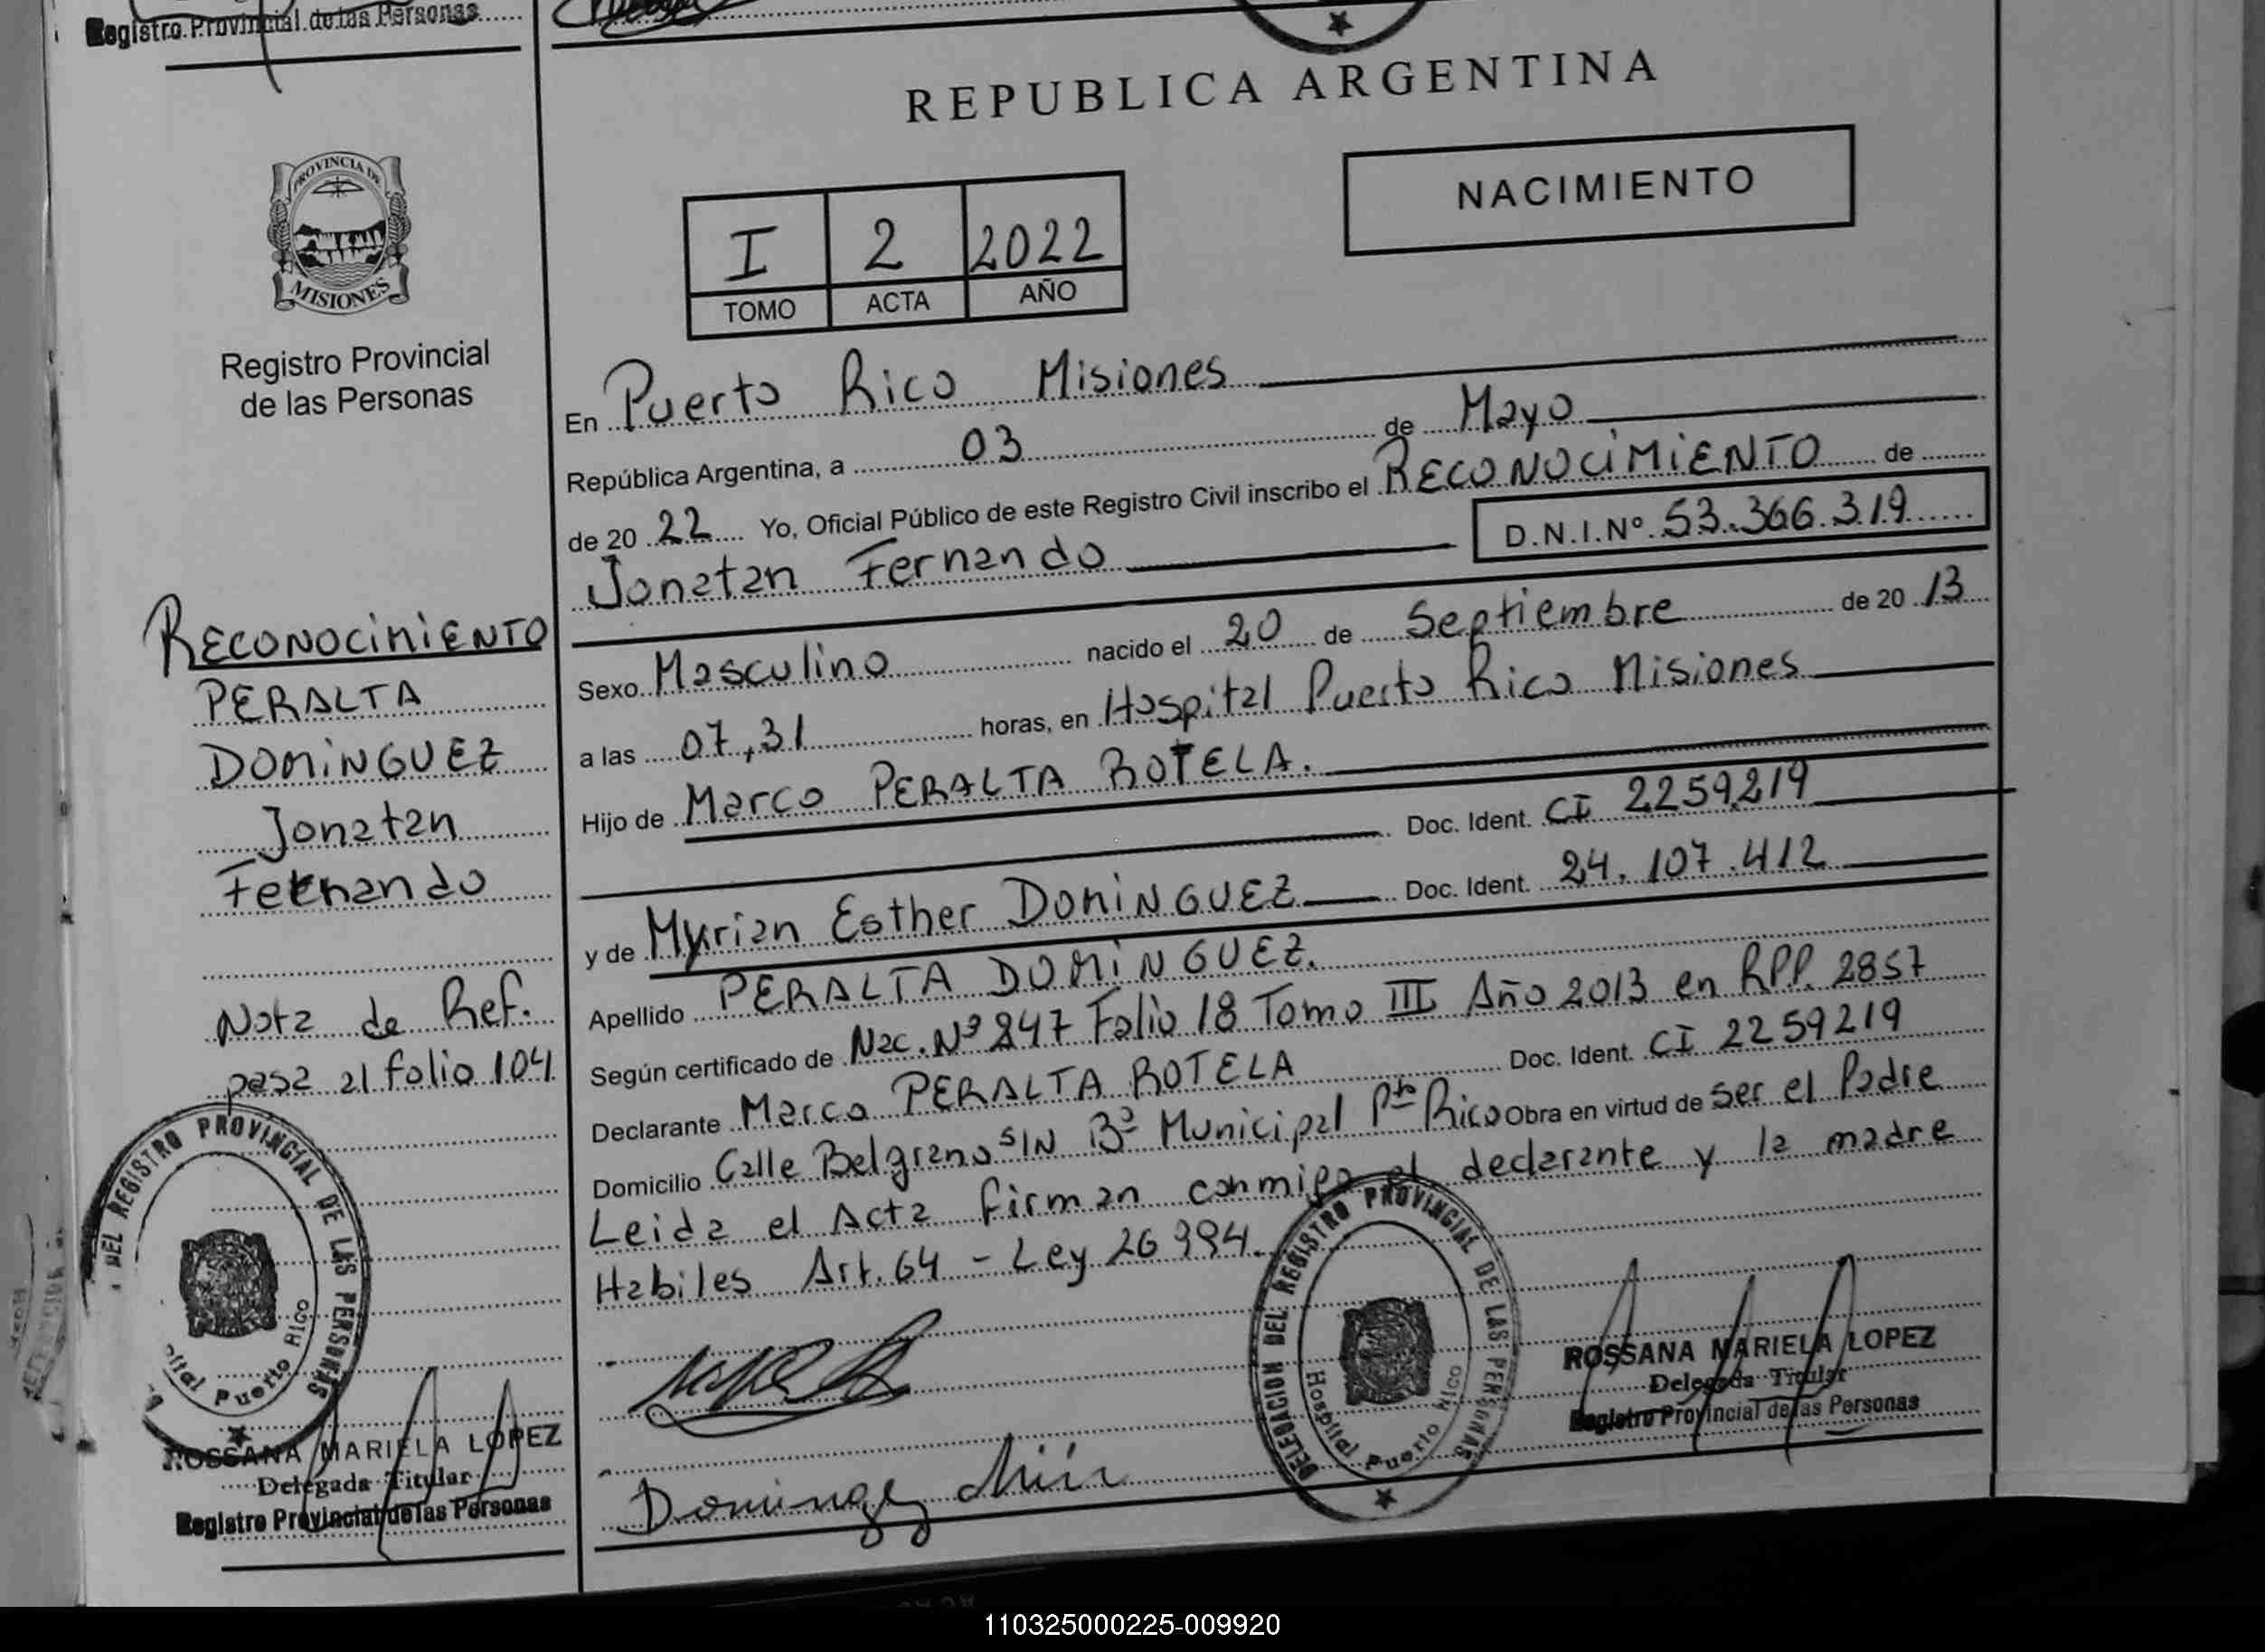 Registro Provincial de las Personas
REPUBLICA ARGENTINA
PROVINCIA DE
MISIONES
Registro Provincial
de las Personas
NACIMIENTO
I 2 2022
TOMO ACTA AÑO
En Puerto Rico Misiones
República Argentina, a 03 de Mayo
de 20 22 Yo, Oficial Público de este Registro Civil inscribo el RECONOCIMIENTO de
Jonatan Fernando D.N.I.Nº 53.366.319
Sexo Masculino nacido el 20 de Septiembre de 20 13
a las 07,31 horas, en Hospital Puerto Rico Misiones
Hijo de Marco PERALTA ROTELA.
Doc. Ident. CI 2259219
y de Myrian Esther DOMINGUEZ Doc. Ident. 24.107.412
Apellido PERALTA DOMINGUEZ.
Según certificado de Nac. Nº 847 Folio 18 Tomo III Año 2013 en RPP. 2857
Declarante Marco PERALTA ROTELA Doc. Ident. CI 2259219
Domicilio Calle Belgrano S/N Bº Municipal Pto Rico Obra en virtud de ser el Padre
Leida el Acta firman conmigo el declarante y la madre
Habiles Art. 64 - Ley 26994.
RECONOCIMIENTO
PERALTA
DOMINGUEZ
Jonatan
Fernando
Nota de Ref.
pasa al folio 104
DEL REGISTRO PROVINCIAL DE LAS PERSONAS
Puerto Rico
ROSSANA MARIELA LOPEZ
Delegada Titular
Registro Provincial de las Personas
DELEGACION DEL REGISTRO PROVINCIAL DE LAS PERSONAS
Hospital Puerto Rico
ROSSANA MARIELA LOPEZ
Delegada Titular
Registro Provincial de las Personas
110325000225-009920